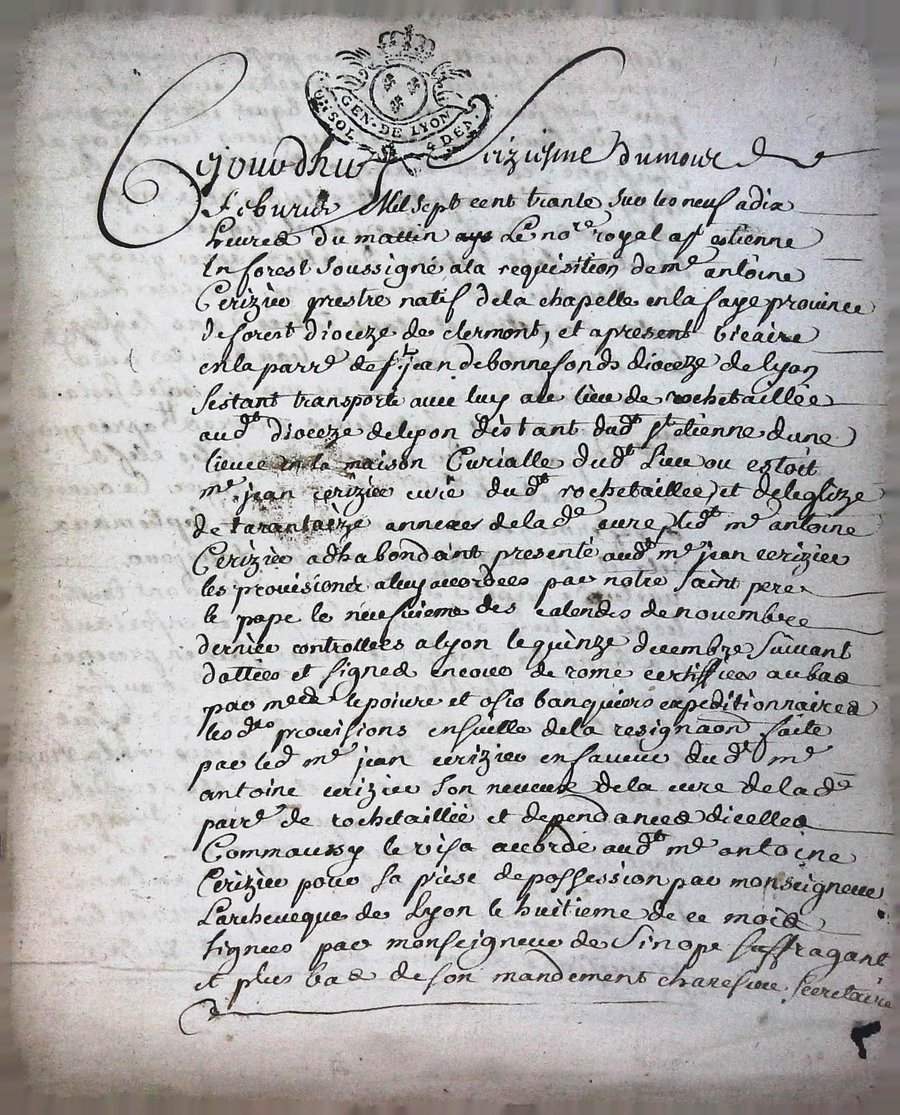 GEN. DE LYON
UN. SOL 4 DEN.
Cejourdhuy seiziesme du mois de
Feburier Mil sept cent trante sur les neuf a dix
heures du mattin Le no.re royal a st estienne
En forest soussigné a la requisition de m.e antoine
Cerizier prestre natif de la chapelle en la faye prouince
de forest dioceze de clermont, et apresent vicaire
en la parr.e de s.t jean de bonnefonds dioceze de lyon
sestant transporté auec luy au lieu de rochetaillée
aud.t dioceze de lyon distant dud.t s.t etienne dune
lieuee en la maison Curialle dud.t Lieu ou estoit
m.e jean cerizier curé dud.t rochetaillée, et de leglize
de tarantaize annexes de la d.e cure, led.t m.e antoine
Cerizier adhabondant presenté aud.t m.e jean cerizier
les provisions a luy accordées par notre saint pere
le pape le neufuieme des calendes de nouembre
dernier controllées a lyon le quinze decembre suiuant
dattées et signés encore de rome certiffiées au bas
par mes.rs lepoiure et osio banquiers expeditionnaires
lesd.tes provisions ensuitte de la resignaõn faite
par led m.e jean cerizier en faueur dud.t m.e
antoine cerizier son neueu de la cure de la d.e
parr.e de rochetaillée et dependances dicelles
Comm aussy le visa accordé aud.t m.e antoine
Cerizier pour sa prise de possession par monseigneur
Larcheueque de Lyon le huitieme de ce mois
signées par monseigneur de Sinope suffragant
et plus bas de son mandement secretaire